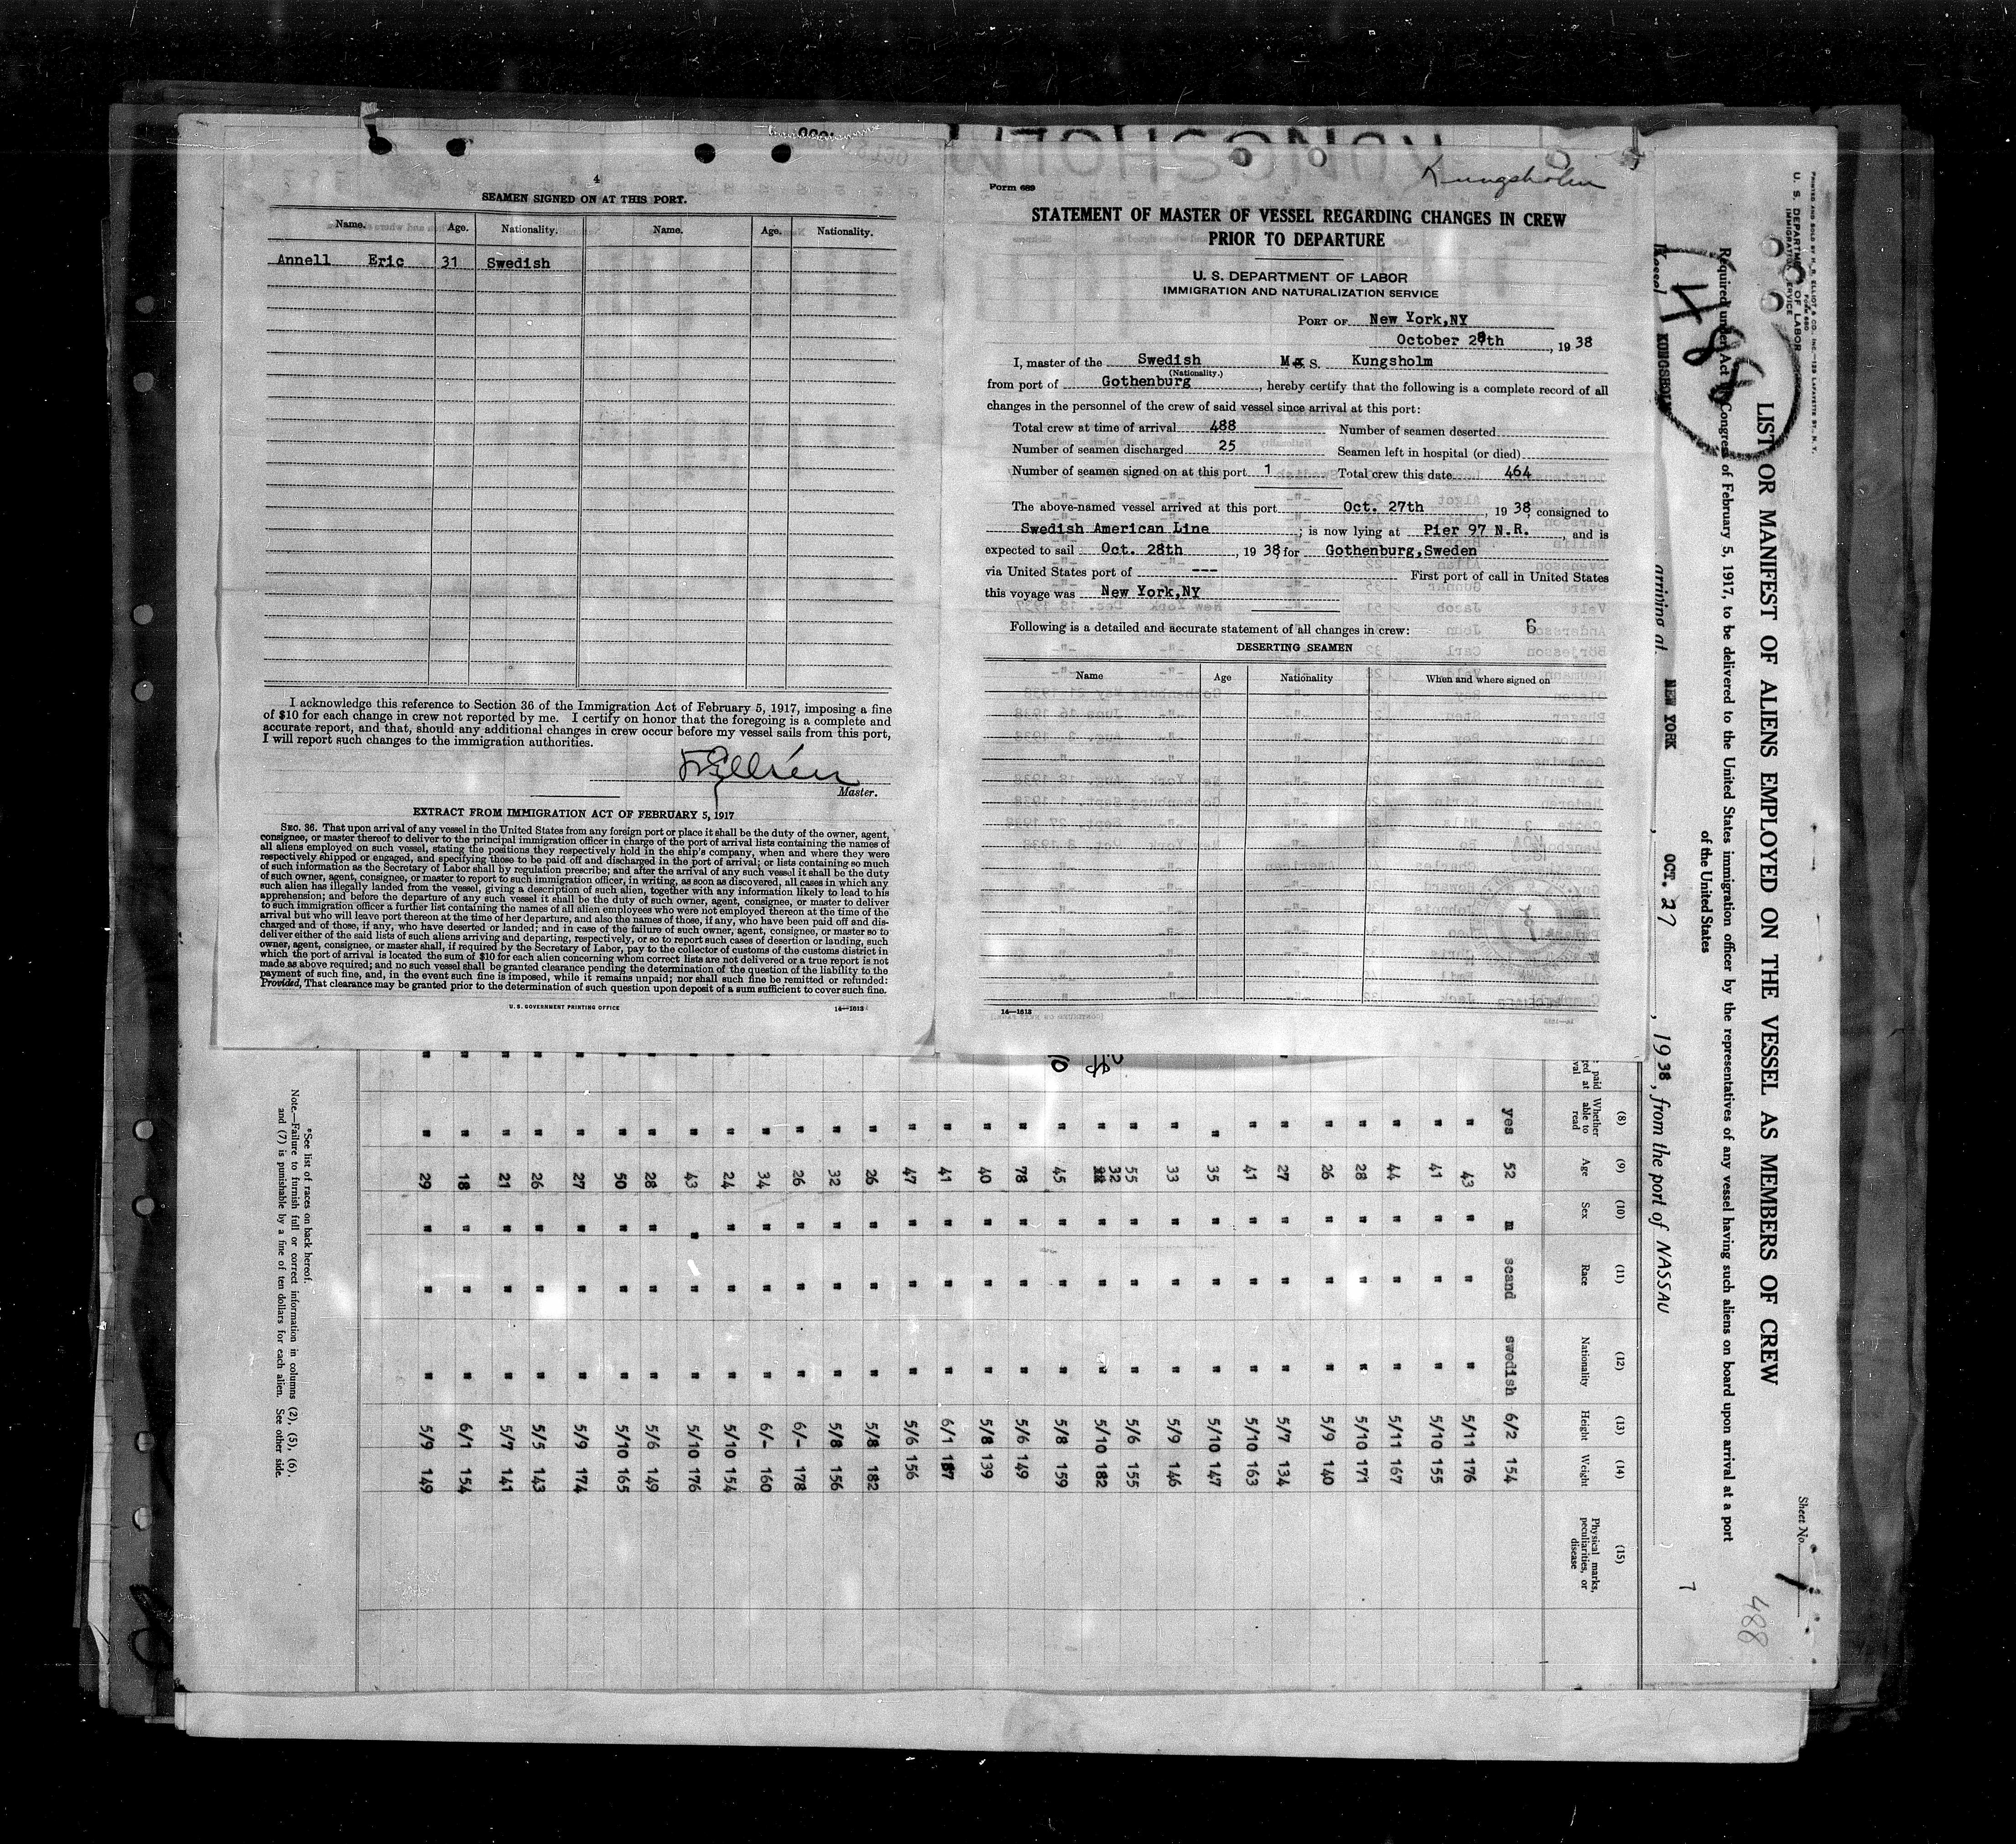 4
SEAMEN SIGNED ON AT THIS PORT.
Name. Age. Nationality. Name. Age. Nationality.
Annell Eric 31 Swedish
I acknowledge this reference to Section 36 of the Immigration Act of February 5, 1917, imposing a fine
of $10 for each change in crew not reported by me. I certify on honor that the foregoing is a complete and
accurate report, and that, should any additional changes in crew occur before my vessel sails from this port,
I will report such changes to the immigration authorities.
Master.
EXTRACT FROM IMMIGRATION ACT OF FEBRUARY 5, 1917
SEC. 36. That upon arrival of any vessel in the United States from any foreign port or place it shall be the duty of the owner, agent,
consignee, or master thereof to deliver to the principal immigration officer in charge of the port of arrival lists containing the names of
all aliens employed on such vessel, stating the positions they respectively hold in the ship's company, when and where they were
respectively shipped or engaged, and specifying those to be paid off and discharged in the port of arrival; or lists containing so much
of such information as the Secretary of Labor shall by regulation prescribe; and after the arrival of any such vessel it shall be the duty
of such owner, agent, consignee, or master to report to such immigration officer, in writing, as soon as discovered, all cases in which any
such alien has illegally landed from the vessel, giving a description of such alien, together with any information likely to lead to his
apprehension; and before the departure of any such vessel it shall be the duty of such owner, agent, consignee, or master to deliver
to such immigration officer a further list containing the names of all alien employees who were not employed thereon at the time of the
arrival but who will leave port thereon at the time of her departure, and also the names of those, if any, who have been paid off and dis-
charged and of those, if any, who have deserted or landed; and in case of the failure of such owner, agent, consignee, or master so to
deliver either of the said lists of such aliens arriving and departing, respectively, or so to report such cases of desertion or landing, such
owner, agent, consignee, or master shall, if required by the Secretary of Labor, pay to the collector of customs of the customs district in
which the port of arrival is located the sum of $10 for each alien concerning whom correct lists are not delivered or a true report is not
made as above required; and no such vessel shall be granted clearance pending the determination of the question of the liability to the
payment of such fine, and, in the event such fine is imposed, while it remains unpaid; nor shall such fine be remitted or refunded:
Provided, That clearance may be granted prior to the determination of such question upon deposit of a sum sufficient to cover such fine.
U. S. GOVERNMENT PRINTING OFFICE 14—1613
Kungsholm
Form 689
STATEMENT OF MASTER OF VESSEL REGARDING CHANGES IN CREW
PRIOR TO DEPARTURE
U. S. DEPARTMENT OF LABOR
IMMIGRATION AND NATURALIZATION SERVICE
PORT OF New York,NY
October 28th, 1938
I, master of the Swedish M. S. Kungsholm
(Nationality.)
from port of Gothenburg, hereby certify that the following is a complete record of all
changes in the personnel of the crew of said vessel since arrival at this port:
Total crew at time of arrival 488 Number of seamen deserted
Number of seamen discharged 25 Seamen left in hospital (or died)
Number of seamen signed on at this port 1 Total crew this date 464
The above-named vessel arrived at this port Oct. 27th, 1938, consigned to
Swedish American Line; is now lying at Pier 97 N.R., and is
expected to sail Oct. 28th, 1938, for Gothenburg,Sweden
via United States port of --- First port of call in United States
this voyage was New York,NY
Following is a detailed and accurate statement of all changes in crew: 6
DESERTING SEAMEN
Name Age Nationality When and where signed on
14—1613
PRINTED AND SOLD BY H. B. ELLIOT & CO., INC.—125 LAFAYETTE ST., N. Y.
Form 680
U. S. DEPARTMENT OF LABOR
IMMIGRATION SERVICE
Sheet No. 1
488
488
LIST OR MANIFEST OF ALIENS EMPLOYED ON THE VESSEL AS MEMBERS OF CREW
Required under Act of Congress of February 5, 1917, to be delivered to the United States immigration officer by the representatives of any vessel having such aliens on board upon arrival at a port
of the United States
7
Vessel KUNGSHOLM arriving at NEW YORK, OCT. 27, 1938, from the port of NASSAU
(8) (9) (10) (11) (12) (13) (14) (15)
Whether able to read Age Sex Race Nationality Height Weight Physical marks, peculiarities, or disease
yes 52 m scand swedish 6/2 154
" 43 " " " 5/11 176
" 41 " " " 5/10 155
" 44 " " " 5/11 167
" 28 " " " 5/10 171
" 26 " " " 5/9 140
" 27 " " " 5/7 134
" 41 " " " 5/10 163
" 35 " " " 5/10 147
" 33 " " " 5/9 146
" 55 " " " 5/6 155
" 32 " " " 5/10 182
" 45 " " " 5/8 159
" 78 " " " 5/6 149
" 40 " " " 5/8 139
" 41 " " " 6/1 187
" 47 " " " 5/6 156
" 26 " " " 5/8 182
" 32 " " " 5/8 156
" 26 " " " 6/- 178
" 34 " " " 6/- 160
" 24 " " " 5/10 154
" 43 " " " 5/10 176
" 28 " " " 5/6 149
" 50 " " " 5/10 165
" 27 " " " 5/9 174
" 26 " " " 5/5 143
" 21 " " " 5/7 141
" 18 " " " 6/1 154
" 29 " " " 5/9 149
*See list of races on back hereof.
Note.—Failure to furnish full or correct information in columns (2), (5), (6),
and (7) is punishable by a fine of ten dollars for each alien. See other side.